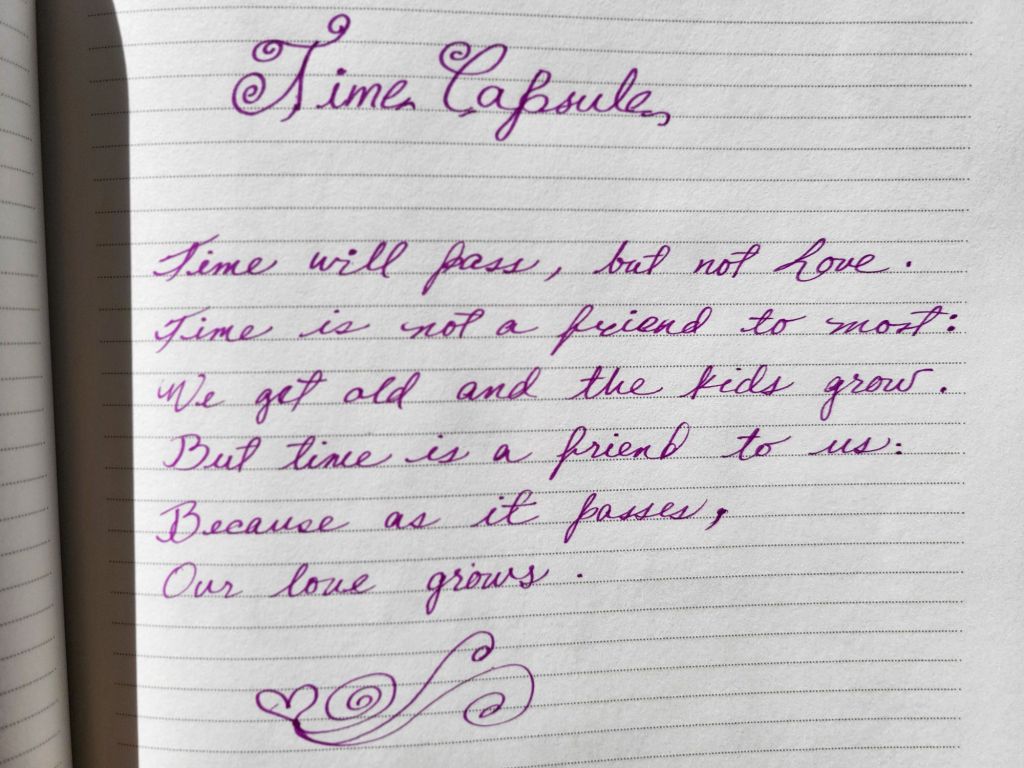 Time Capsule
Time will pass, but not Love.
Time is not a friend to most:
We get old and the kids grow.
But time is a friend to us:
Because as it passes,
Our love grows.